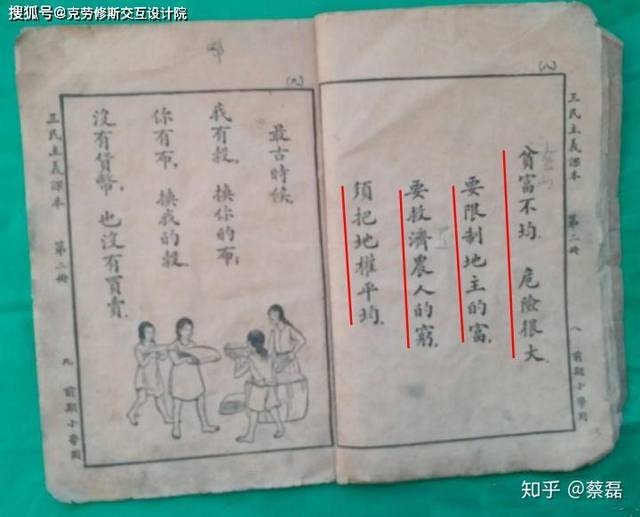 搜狐号@克劳修斯交互设计院
三民主義課本 第二冊 八 前期小學用
(八)
貧富不均．危險很大．
要限制地主的富．
要救濟農人的窮．
須把地權平均．
(九)
最古時候．
我有穀．換你的布；
你有布．換我的穀．
沒有貨幣．也沒有買賣．
三民主義課本 第二冊 九 前期小學用
知乎 @蔡磊